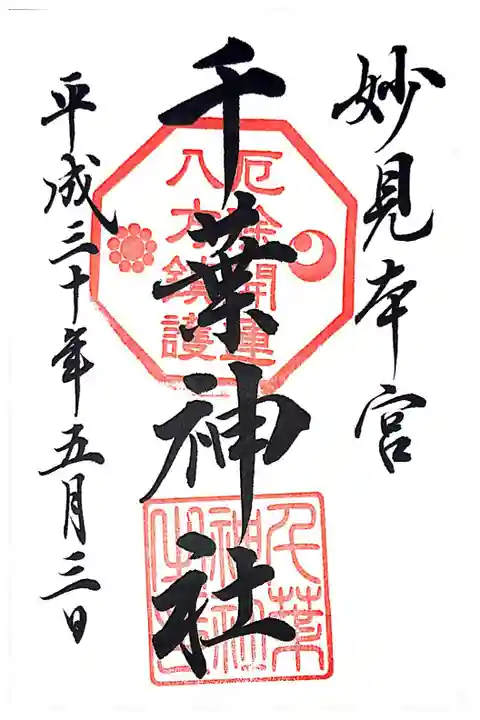 妙見本宮
千葉神社
平成三十年五月三日
厄除開運
八方鎮護
千葉神社